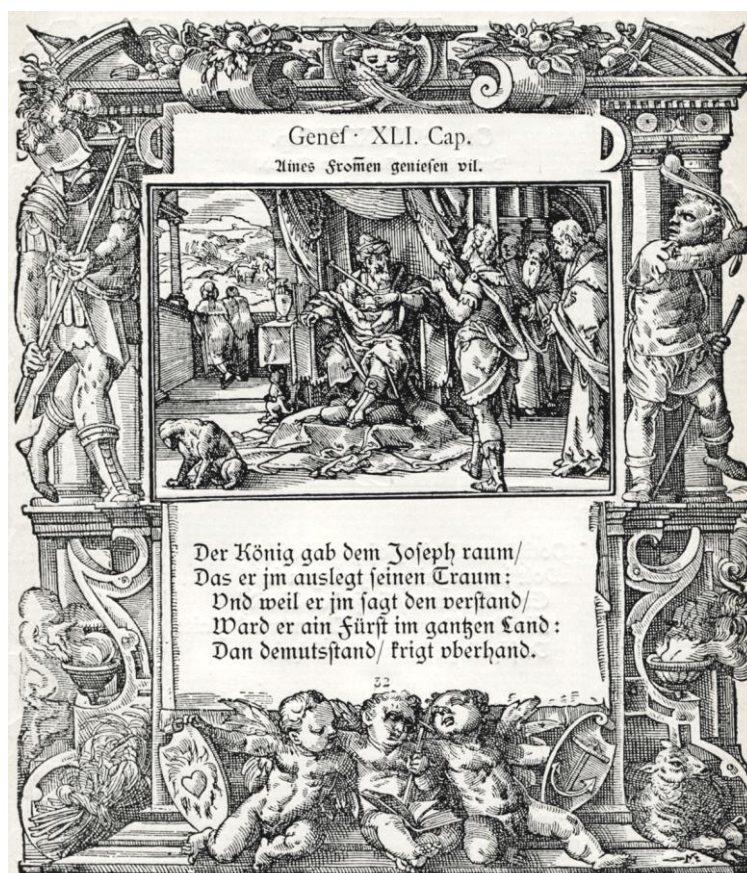 Genes· XLI. Cap.
Aines From̃en geniesen vil.
Der König gab dem Joseph raum/
Das er jm auslegt seinen Traum:
Vnd weil er jm sagt den verstand/
Ward er ain Fürst im gantzen Land:
Dan demutsstand/ krigt vberhand.
32